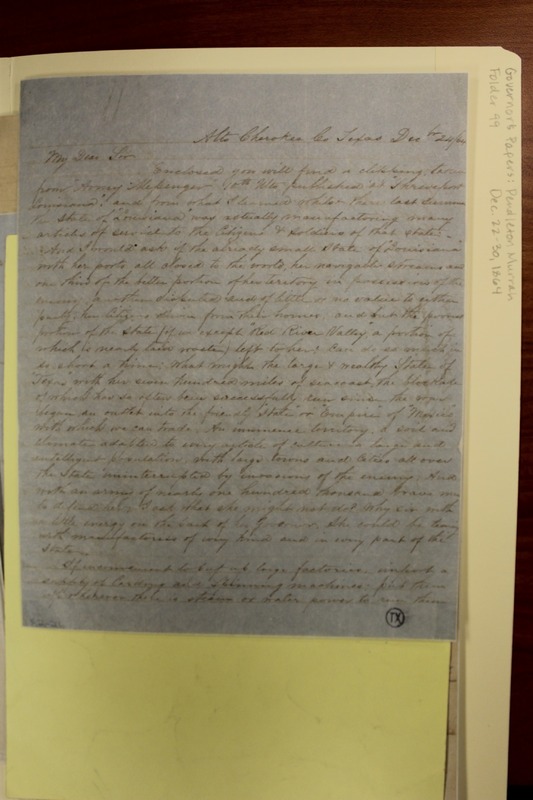 Alto Cherokee Co Texas Decr 24/64
My Dear Sir
Enclosed you will find a
from "Army Messenger" published at "Shreveport
Louisiana" and from what I learned whilst there last Summer
State of "Louisiana" was actually manufacturing many
articles of service to the Citizens & Soldiers of that State.
And I would ask if the already small State of "Louisiana"
with her ports all closed to the world, her navigable streams and
one third of the better portion of her territory in possession of the
enemy, another disputed and of little or no value to either
party, her Citizens driven from their homes, and but the poorest
portion of the State (if we except Red River Valley, a portion of
which is nearly laid waste) left to her, can do so much in
so short a time; What might the large & wealthy State of
Texas with her seven hundred miles of seacoast the blockade
of which has so often been successfully run since the war
began an outlet into the friendly State or "Empire" of Mexico
with which we can trade. An immense territory, a soil and
climate adapted to every article of culture a large and
intelligent population, with large towns and Cities all over
the State uninterrupted by invasions of the enemy. And
with an army of nearly one hundred thousand brave men
to defend her. I ask what she might not do? Why sir with
a little energy on the part of her Governor, She could be
with manufactories of every kind and in every part of the
State.
to set up large factories, import a
supply of Carding and Spinning machines, put them
up wherever there is steam or water power to run them
TX
Governor's Papers: Pendleton Murrah
Dec. 22-30, 1864
Folder 49